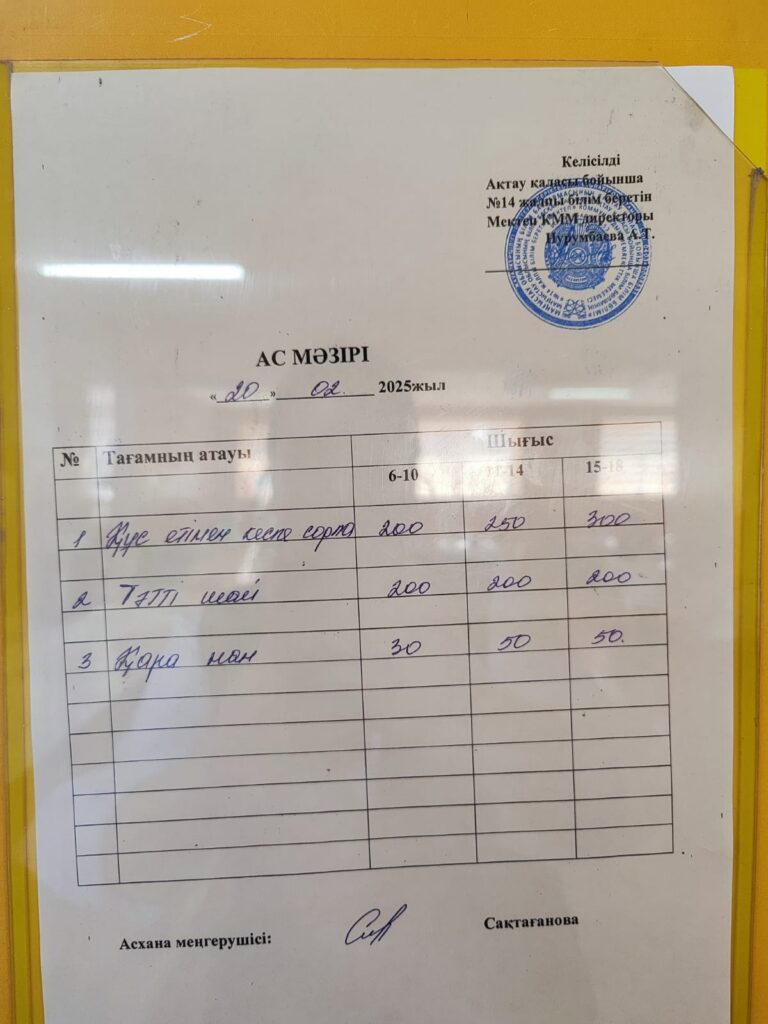 Келісілді
Ақтау қаласы бойынша
№14 жалпы білім беретін
Мектеп КММ директоры
Нурумбаева А.Т.
АС МӘЗІРІ
«20» 02. 2025жыл
№ Тағамның атауы Шығыс
6-10 11-14 15-18
1 Құс етімен кеспе сорпа 200 250 300
2 Тәтті шай 200 200 200
3 Қара нан 30 50 50.
Асхана меңгерушісі: Сақтағанова